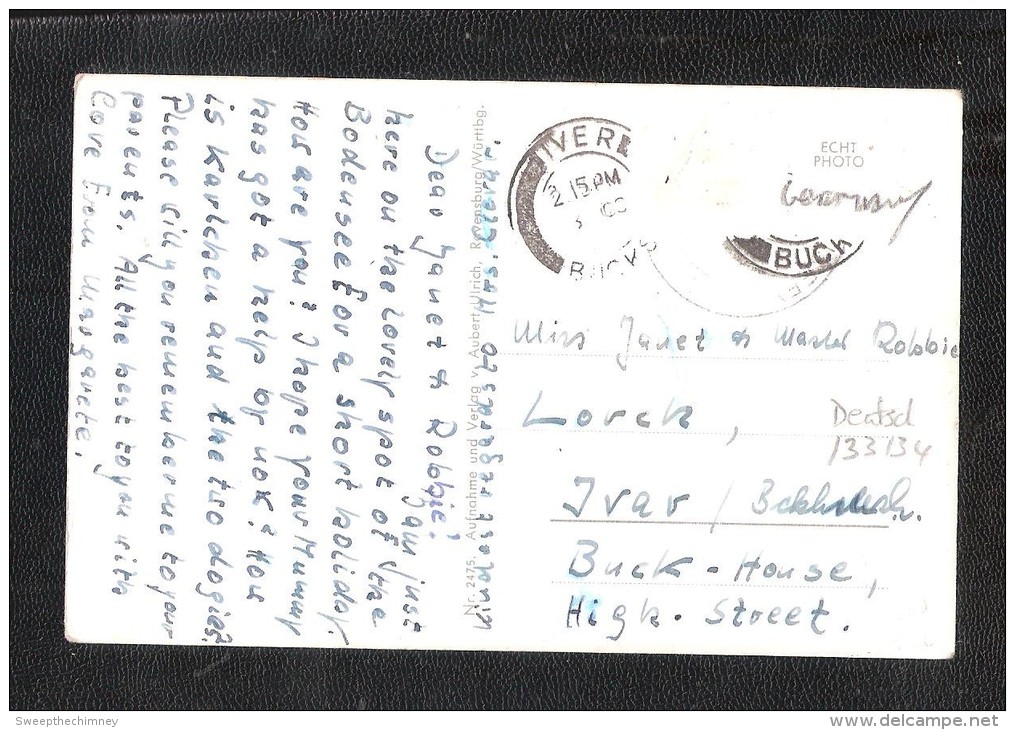 Dear Janet & Robbie!
I am just
here on the lovely spot of the
Bodensee for a short holiday.
How are you? I hope your Mummy
has got a help by now? How
is Karlchen and the two dogies?
Please will you remember me to your
parents. All the best to you with
love from Margarete.
Kind regards to Mrs.
Nr. 2475. Aufnahme und Verlag v. Aubert Ulrich, Ravensburg/Württbg.
IVER
2.15 PM
BUCKS
BUCK
ECHT
PHOTO
Germany
Miss Janet & Master Robbie
Lorck,
Deutsch
133134
Ivar /
Buck-House,
High-Street.
Sweepthechimney
delcampe.net